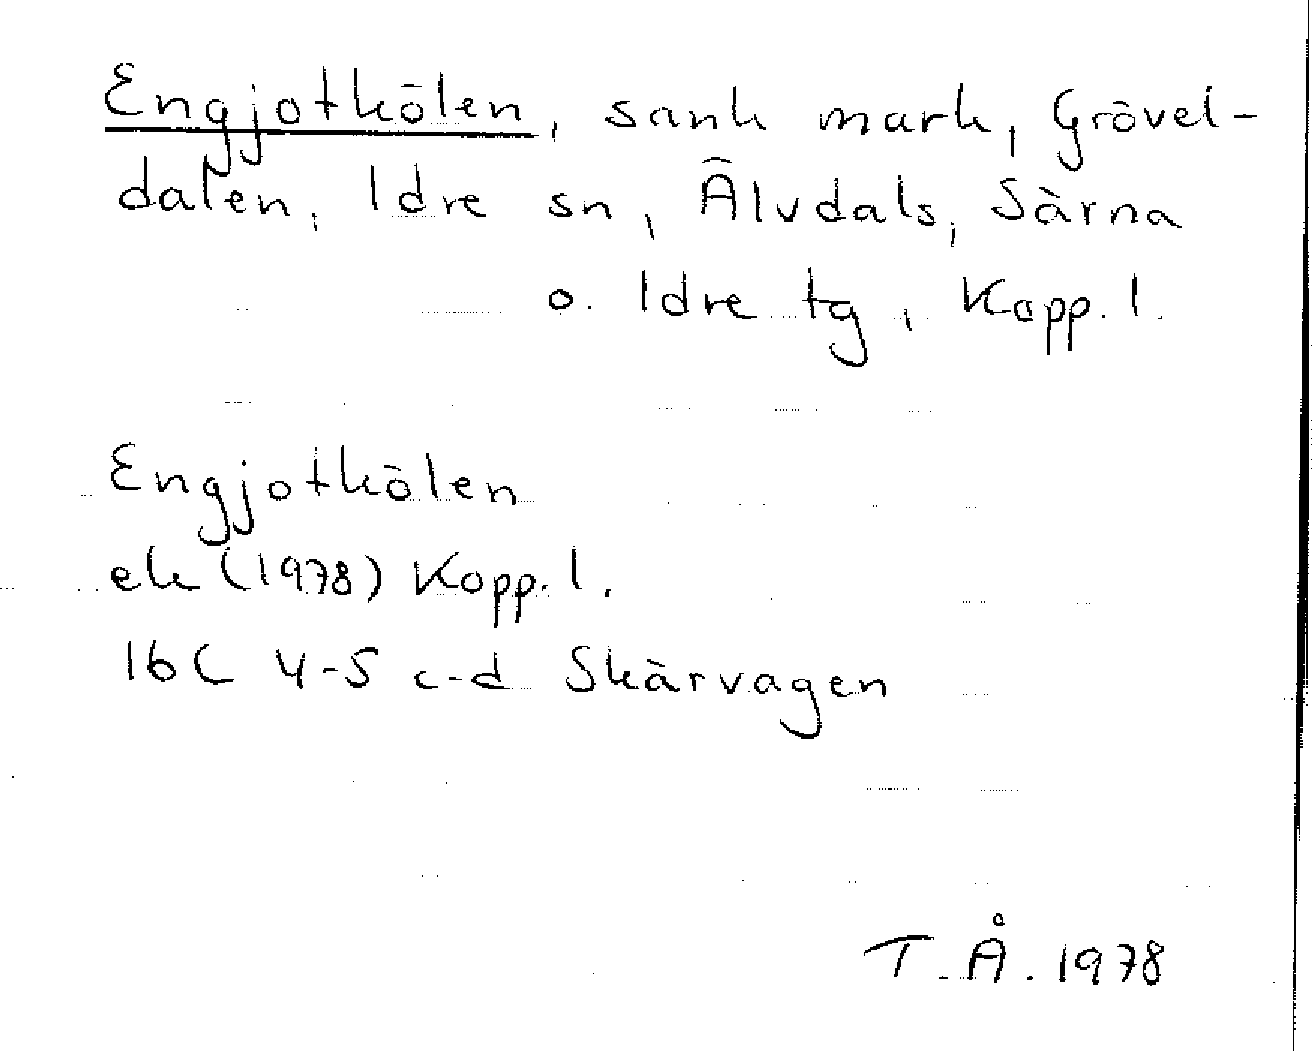 Engjotkölen, sank mark, Grövel-
dalen, Idre sn, Älvdals, Särna
o. Idre tg, Kopp. l.
Engjotkölen
ek (1978) Kopp. l.
16C 4-5 c-d Skärvagen
T. Å. 1978